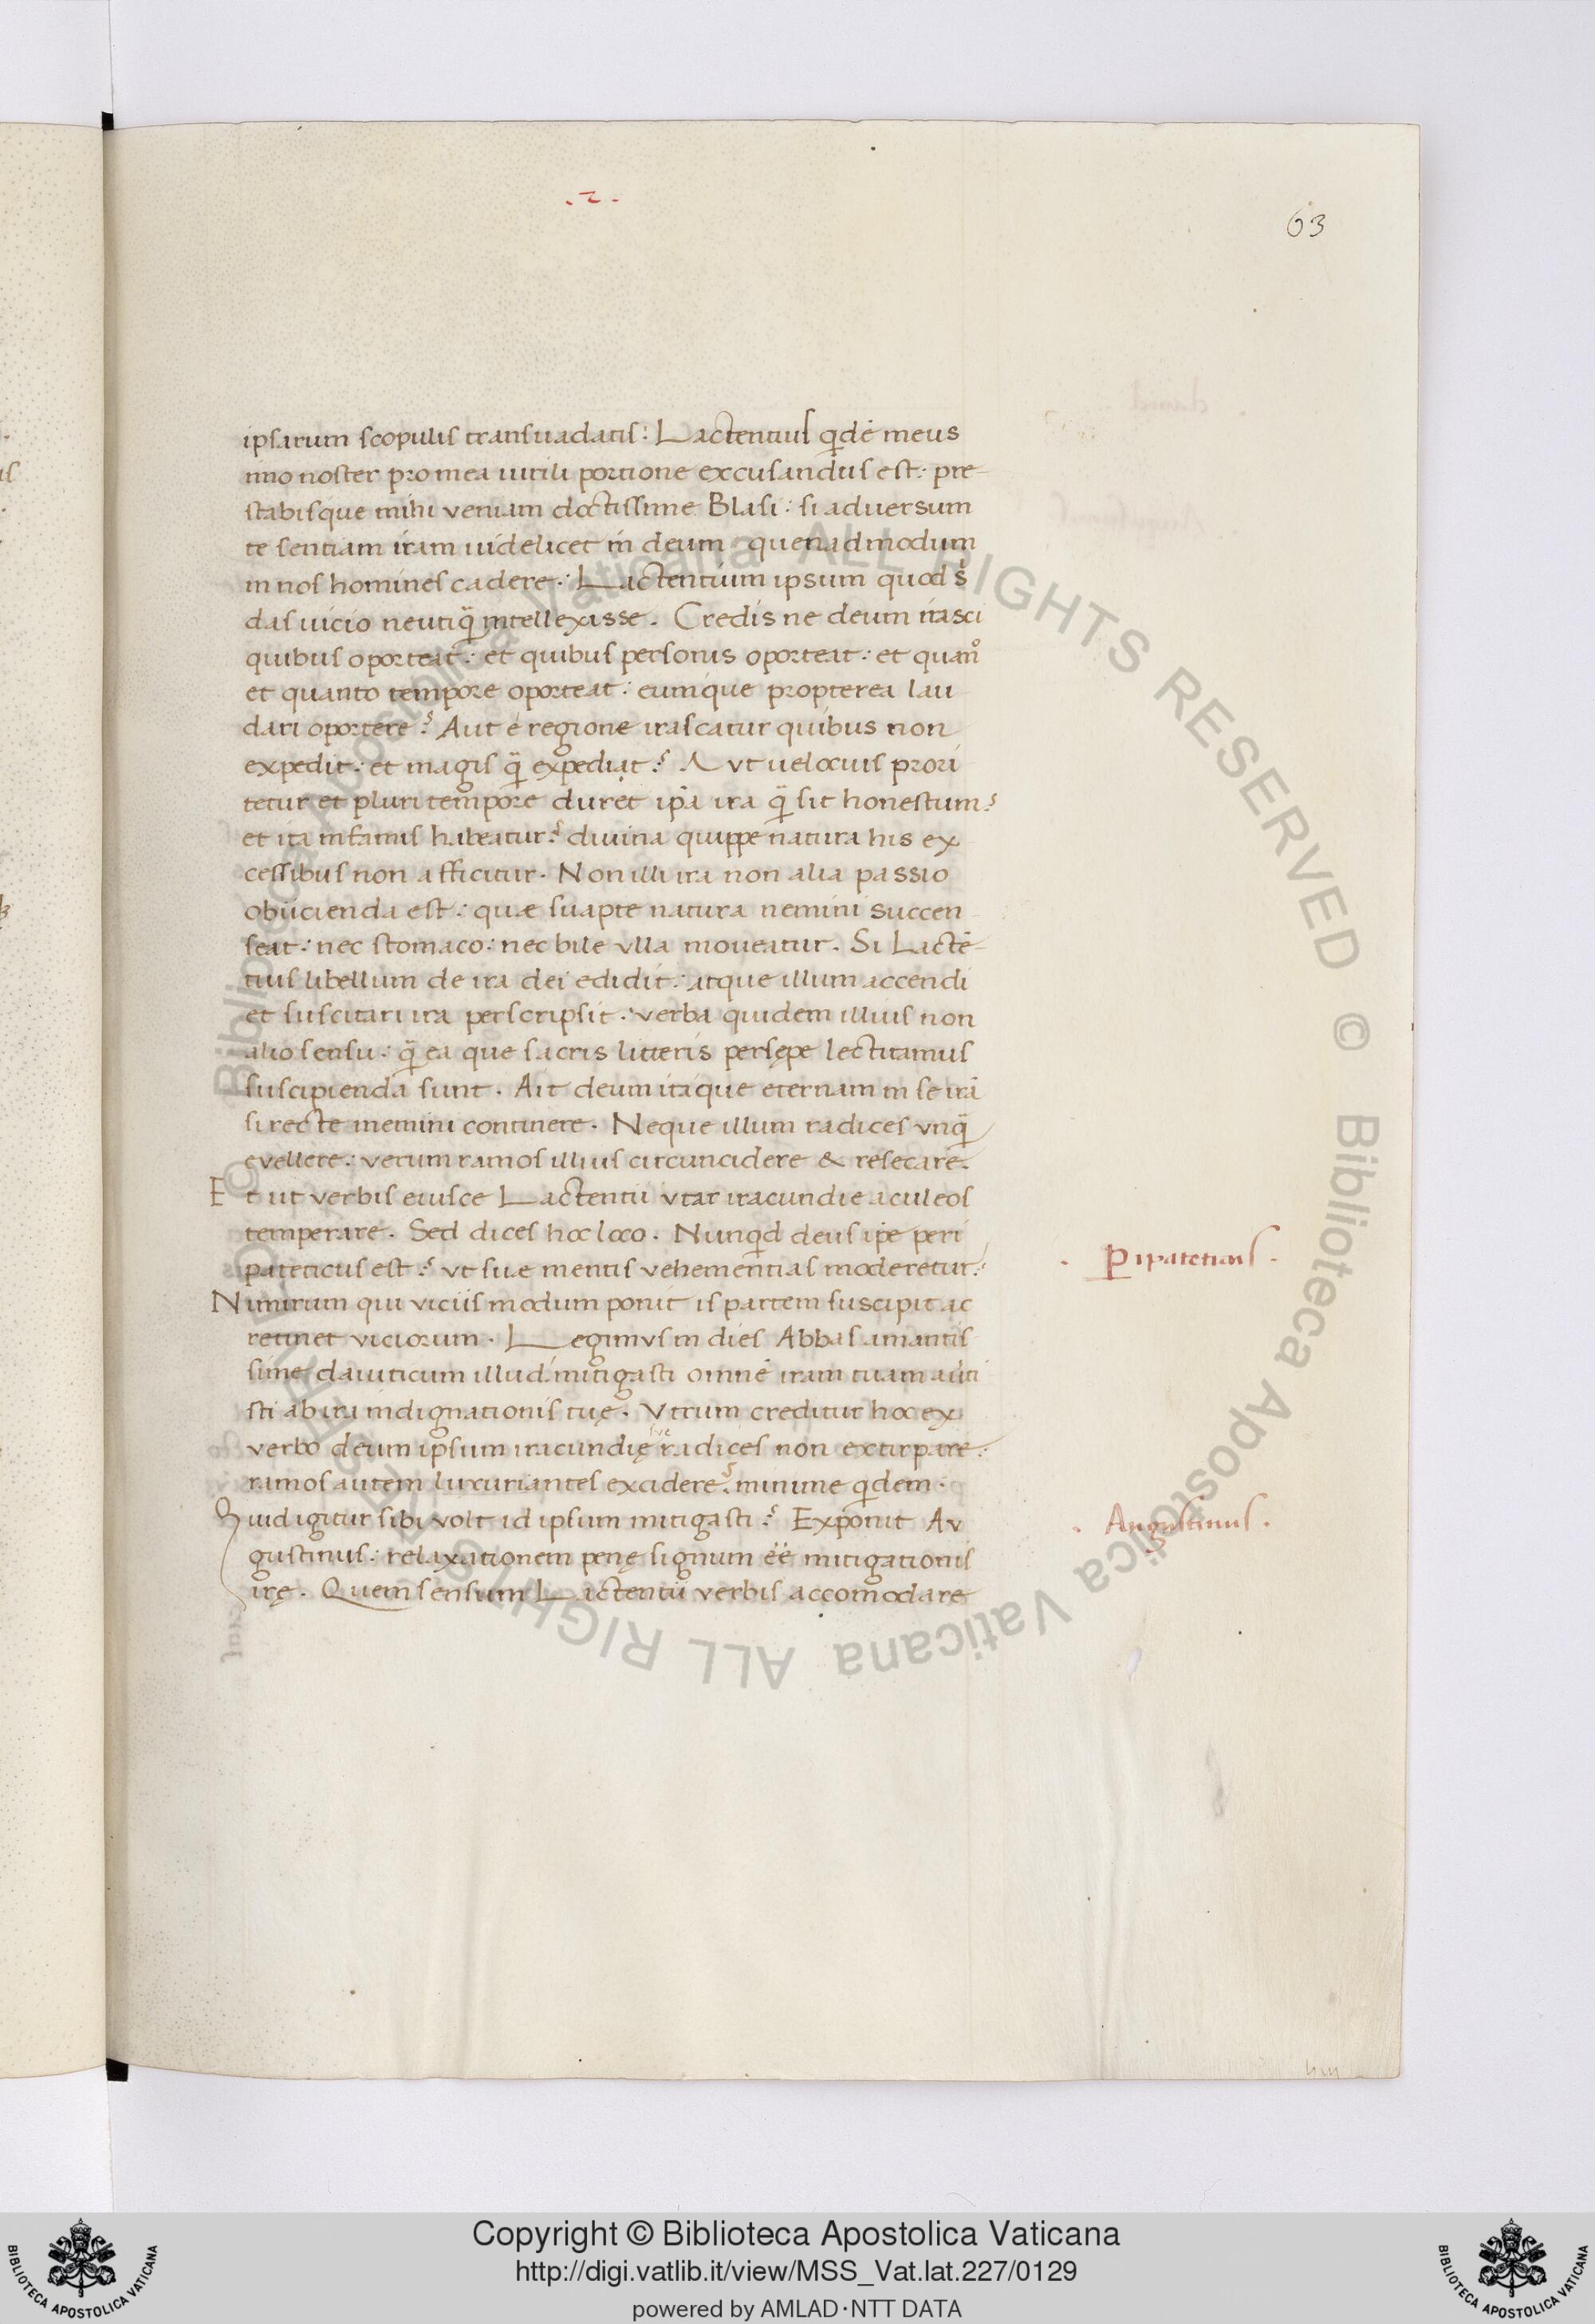 .2.
63
ipsarum scopulis transuadatis: Lactentius qđe meus
imo noster pro mea uirili portione excusandus est: pre
stabisque mihi veniam doctissime Blasi: si adversum
te sentiam iram uidelicet in deum quenadmodum
in nos homines cadere: Lactentium ipsum quod
das uicio neutiq̃ intellexisse. Credis ne deum irasci
quibus oporteat: et quibus personis oporteat: et quan̊
et quanto tempore oporteat: eumque propterea lau
dari oportere? Aut e regione irascatur quibus non
expedit: et magis q̃ expediat? Aut uelocius prori
tetur et pluri tempore duret ip̃a ira q̃ sit honestum?
et ita infamis habeatur? diuina quippe natura his ex
cessibus non afficitur. Non illi ira non alia passio
obiicienda est: quae suapte natura nemini succen
seat: nec stomaco: nec bile vlla moveatur. Si Lactẽ
tius libellum de ira dei edidit: atque illum accendi
et suscitari ira perscripsit: verba quidem illius non
alio sensu: q̃ ea que sacris litteris persępe lectitamus
suscipienda sunt. Ait deum itaque eternam in se irã
si recte memini continere. Neque illum radices vnq̃
evellere: verum ramos illius circuncidere & resecare.
Et ut verbis eiusce Lactentii vtar iracundie aculeos
temperare. Sed dices hoc loco. Nunqd deus ip̃e peri
pateticus est? vt suae mentis vehementias moderetur?
Nimirum qui viciis modum ponit is partem suscipit ac
retinet viciorum. Legimus in dies Abbas amantis
sime dauiticum illud: mitigasti omnẽ iram tuam av̓ti
sti ab ira indignationis tuę. Vtrum creditur hoc ex
verbo deum ipsum iracundię radices non extirpare:
ramos autem luxuriantes excidere? minime qdem.
Quid igitur sibi volt id ipsum mitigasti? Exponit Au
gustinus: relaxationem penę signum ẽẽ mitigationis
irę. Quem sensum Lactentii verbis accomodare
. Pipateticus.
. Augustinus.
© Biblioteca Apostolica Vaticana ALL RIGHTS RESERVED © Biblioteca Apostolica Vaticana ALL RIGHTS RESERVED
Copyright © Biblioteca Apostolica Vaticana
http://digi.vatlib.it/view/MSS_Vat.lat.227/0129
powered by AMLAD·NTT DATA
BIBLIOTECA APOSTOLICA VATICANA
BIBLIOTECA APOSTOLICA VATICANA